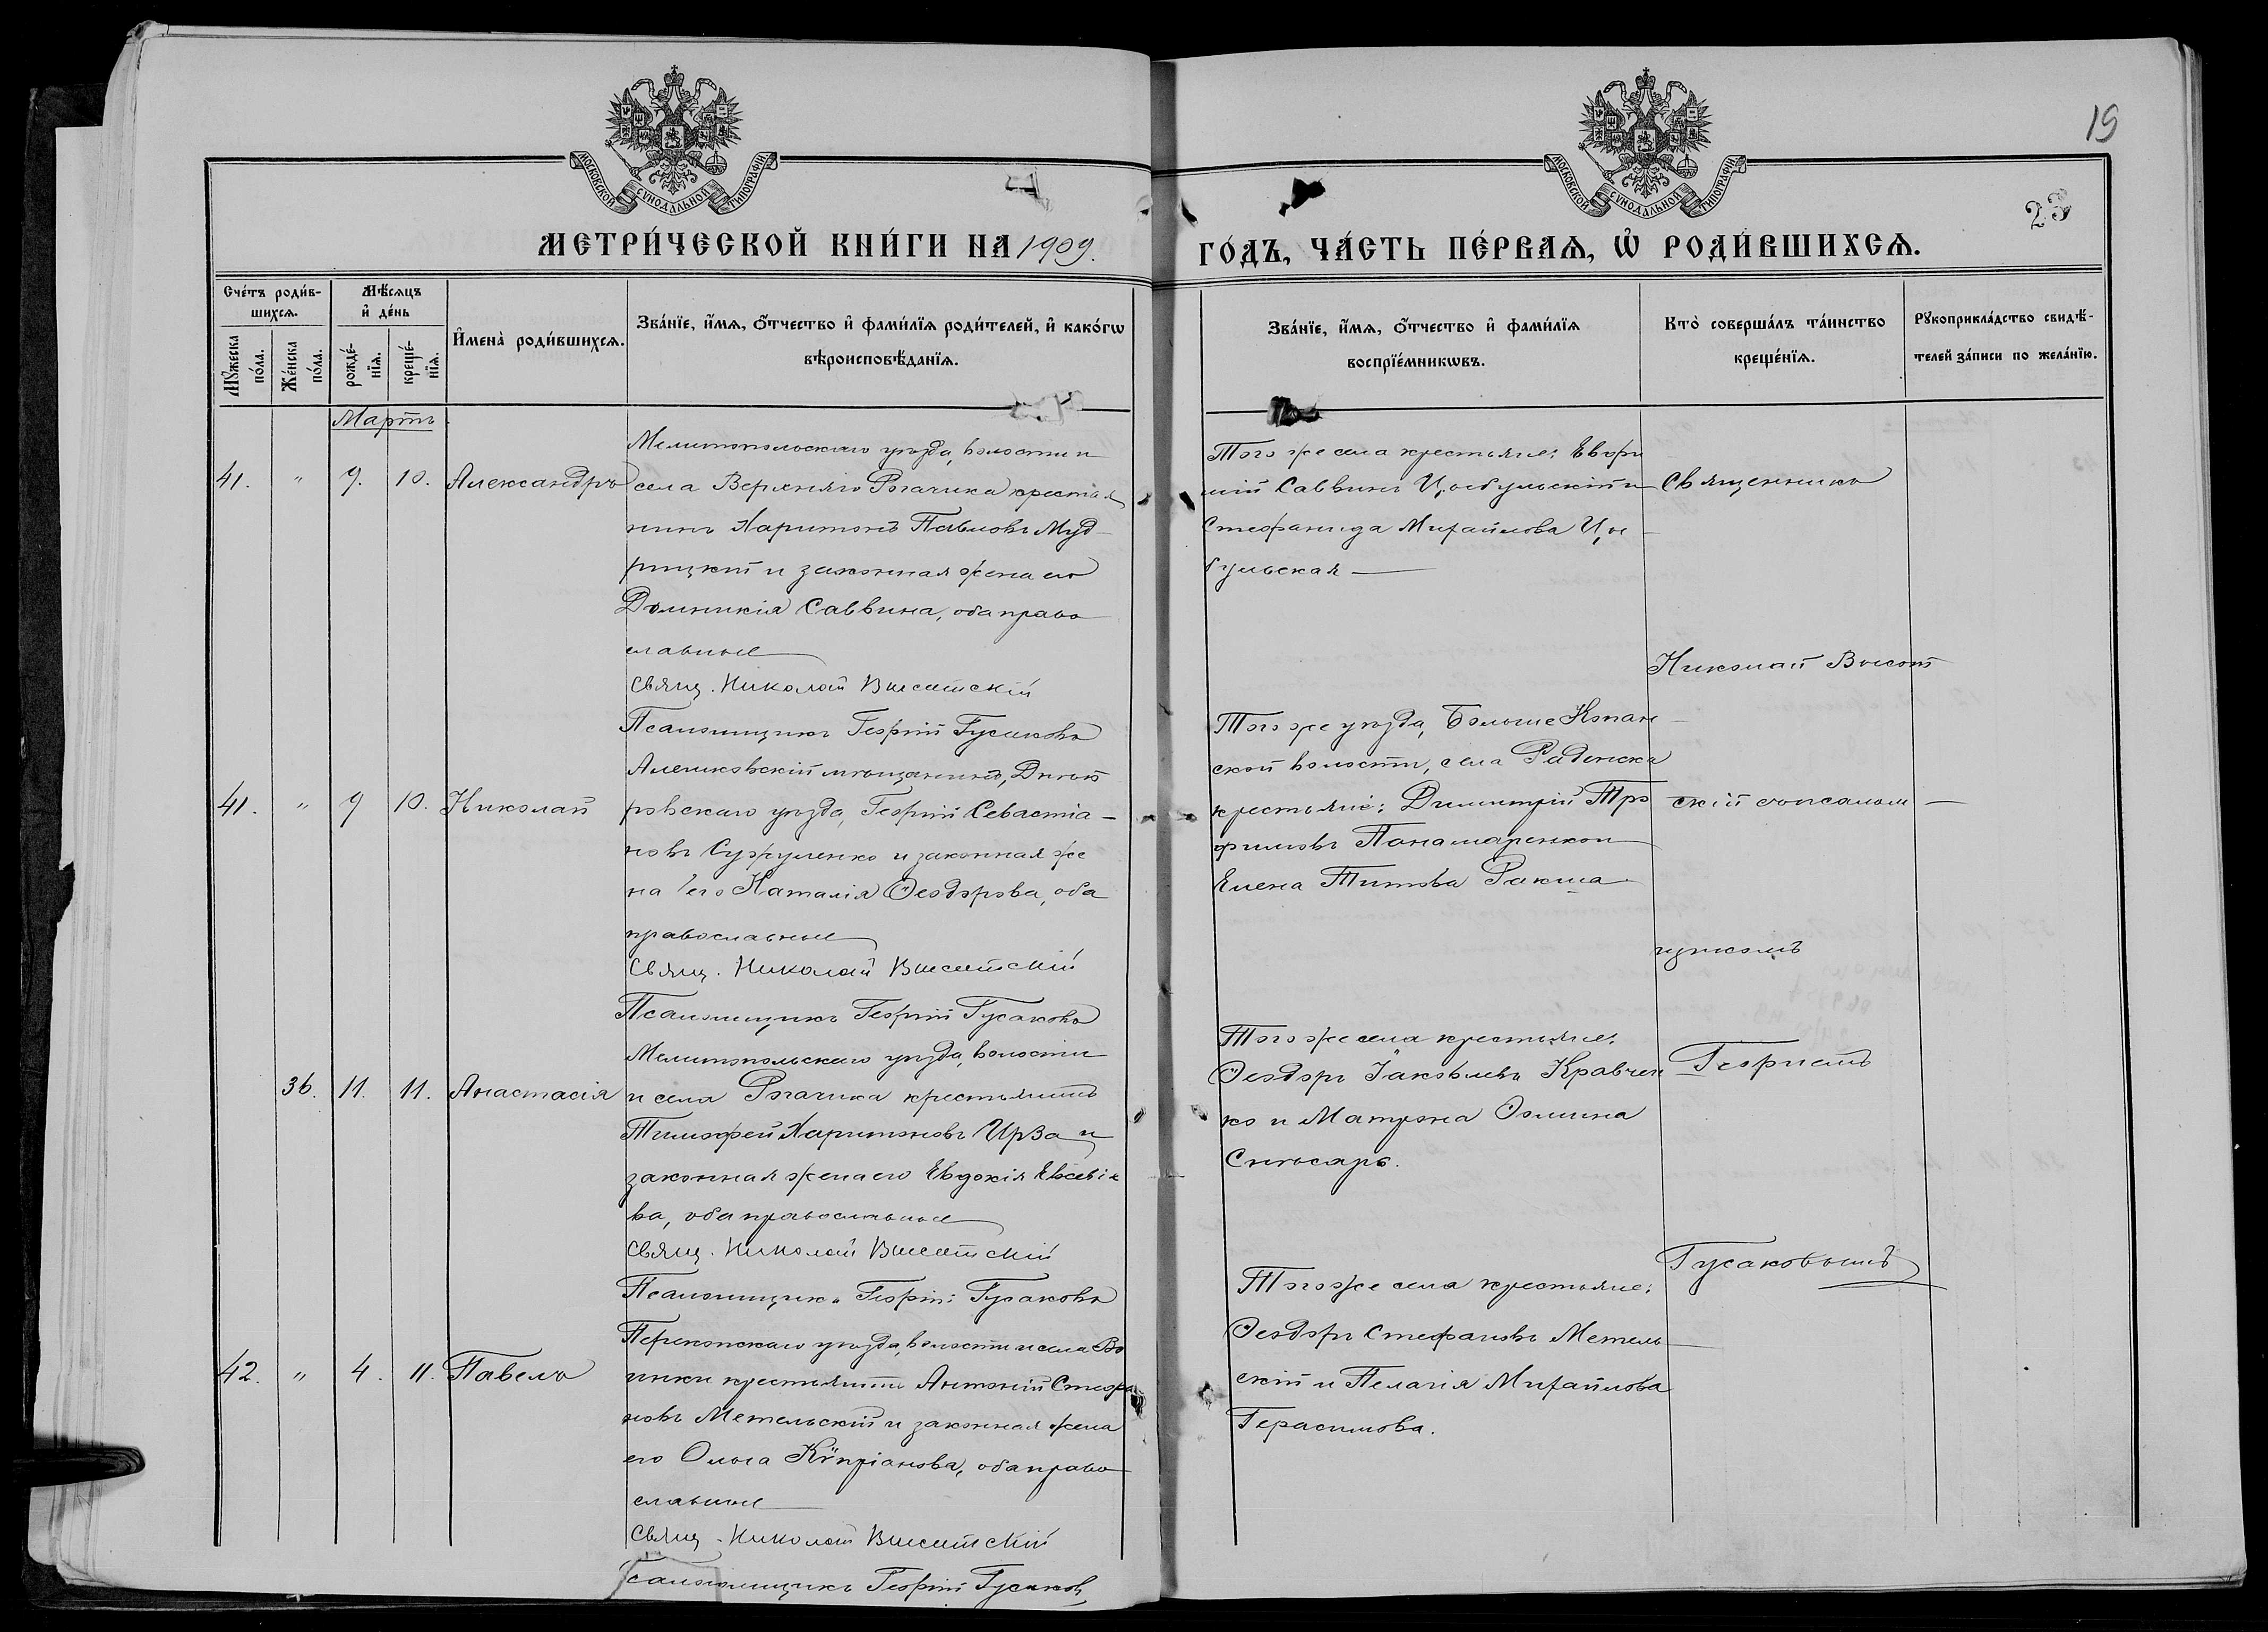 19
23
МОСКОВСКОЙ СУНОДАЛЬНОЙ ТИПОГРАФІИ
МОСКОВСКОЙ СУНОДАЛЬНОЙ ТИПОГРАФІИ
МЕТРИ́ЧЕСКОЙ КНИ́ГИ НА 1909.
ГО́ДЪ, ЧА́СТЬ ПЕ́РВАѦ, Ѡ҆ РОДИ́ВШИХСѦ.
Сче́тъ роди́в-
шихсѧ.
Мꙋ́жеска по́ла.
Же́нска по́ла.
Мѣ́сѧцъ
и҆ де́нь
рожде́-
нїѧ.
креще́-
нїѧ.
И҆мена̀ роди́вшихсѧ.
Зва́нїе, и҆́мѧ, ѻ҆́тчество и҆ фами́лїѧ роди́телей, и҆ како́гѡ
вѣроисповѣ́данїѧ.
Зва́нїе, и҆́мѧ, ѻ҆́тчество и҆ фами́лїѧ
воспрїе́мникѡвъ.
Кто̀ соверша́лъ та́инство
креще́нїѧ.
Рꙋкоприкла́дство свидѣ́-
телей за́писи по жела́нїю.
Мартъ.
41. " 9. 10. Александръ
Мелитопольскаго уѣзда, волости и
села Верхняго Рогачика крестья
нинъ Харитонъ Павловъ Муд-
рицкій и законная жена его
Домникія Саввина, оба право
славные
Свящ. Николай Высотскій
Псаломщикъ Георгій Гусаковъ
Того же села крестьяне: Евфи
мій Саввинъ Цыбульскій и
Стефанида Михайлова Цы-
бульская
Священникъ
Николай Высот
41. " 9 10. Николай
Алешковскій мѣщанинъ, Днѣп
ровскаго уѣзда, Георгій Севастіа-
новъ Сужуленко и законная же
на его Наталія Ѳеодорова, оба
православные
Свящ. Николай Высотскій
Псаломщикъ Георгій Гусаковъ
Того же уѣзда, Больше Копан-
ской волости, села Раденска
крестьяне: Димитрій Тро
фимовъ Панамаренко и
Елена Титова Ракша
скій съ псалом-
щикомъ
36. 11. 11. Анастасія
Мелитопольскаго уѣзда, волости
и села Рогачика крестьянинъ
Тимофей Харитоновъ Ирза и
законная жена его Евдокія Евсевіе
ва, оба православные
Свящ. Николай Высотскій
Псаломщикъ Георгій Гусаковъ
Того же села крестьяне:
Ѳеодоръ Іаковлевъ Кравчен
ко и Матрона Ѳомина
Снѣсарь.
Георгіемъ
Гусаковымъ
42. " 4. 11. Павелъ
Перекопскаго уѣзда, волости и села Во
инки крестьянинъ Антоній Стефа-
новъ Метельскій и законная жена
его Ольга Кѵпріанова, оба право
славные
Свящ. Николай Высотскій
Псаломщикъ Георгій Гусаковъ
Того же села крестьяне:
Ѳеодоръ Стефановъ Метель-
скій и Пелагія Михайлова
Герасимова.